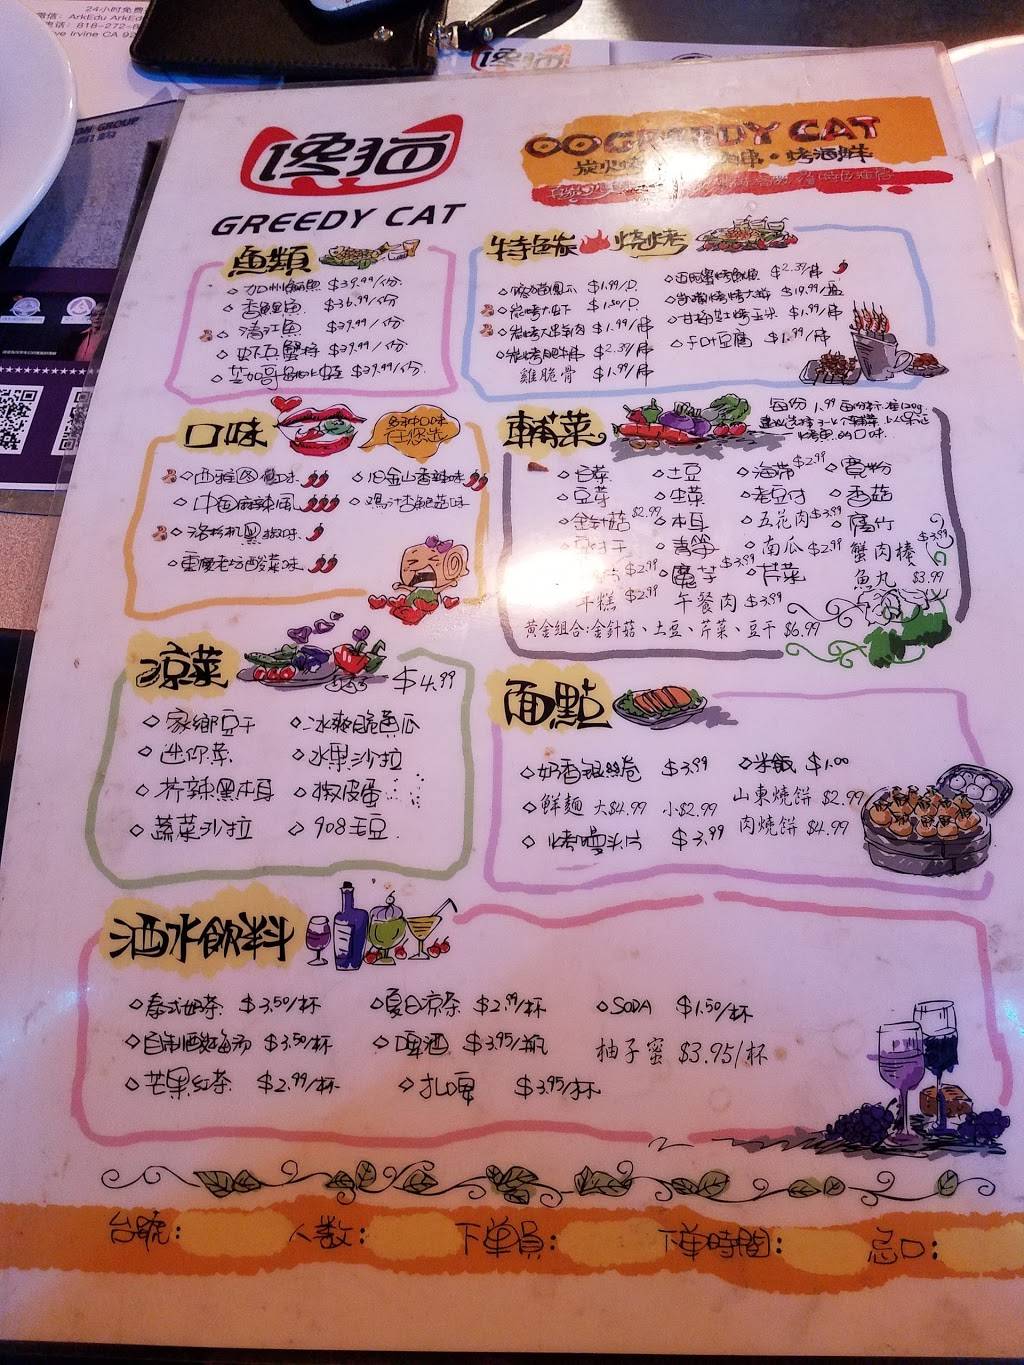 24小时免费
微信: ArkEdu ArkEd
电话: 818-272-6
ve Irvine CA 92
ON GROUP
馋猫
馋猫
GREEDY CAT
GREEDY CAT
炭火烤 串·烤海鲜
魚類
加州鱸魚 $39.99/份
香鯰魚 $36.99/份
清江魚 $39.99/份
$39.99/份
$39.99/份
特色炭 烧烤
$1.99/只
炭烤大虾 $1.50/只
炭烤大串羊肉 $1.99/串
炭烤肥牛串 $2.39/串
雞脆骨 $1.99/串
$2.39/串
$19.99/盘
$1.99/串
豆腐 $1.99/串
口味
多种口味
任您选
西雅图 味
中国麻辣風
洛杉机黑椒味
重慶老坛酸菜味
旧金山香辣味
鷄汁杏鮑菇味
輔菜
每份1.99 每份标准120g
烤魚的口味
豆芽
金針菇 $2.99
年糕 $2.99
土豆
生菜
木耳
青筍
魔芋 $3.99
午餐肉 $3.99
海带 $2.99
老豆才
五花肉 $3.99
南瓜 $2.99
芹菜
寬粉
香菇
腐竹
蟹肉棒 $3.99
魚丸 $3.99
黄金组合:金針菇、土豆、芹菜、豆干 $6.99
凉菜 $4.99
家鄉豆干
迷你菜
芥辣黑木耳
蔬菜沙拉
冰爽脆黄瓜
水果沙拉
椒皮蛋
908毛豆
面點
奶香銀絲卷 $3.99
鮮麵 大$4.99 小$2.99
烤饅头片 $3.99
米飯 $1.00
山東燒餅 $2.99
肉燒餅 $4.99
酒水飲料
泰式奶茶 $3.50/杯
自制酸梅汤 $3.50/杯
芒果红茶 $2.99/杯
夏日凉茶 $2.99/杯
啤酒 $3.95/瓶
扎啤 $3.95/杯
SODA $1.50/杯
柚子蜜 $3.95/杯
台號:
人数:
下单員:
下单時間:
忌口: